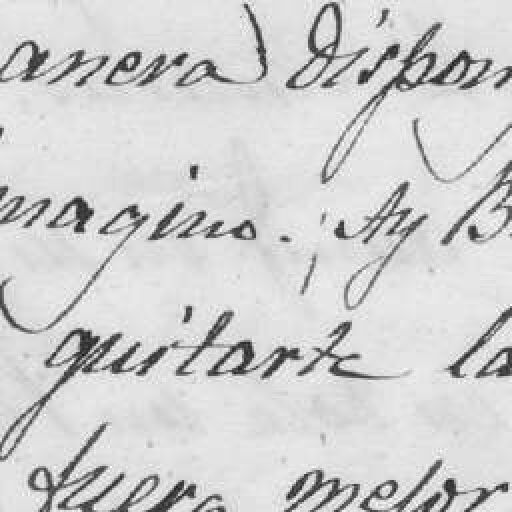 anera) Dispon
magino. ¡Ay B
quitarte la
fuera mejor